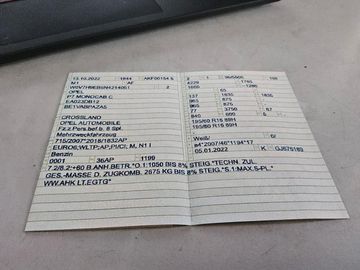 13.10.2022 1844 AKF00154 5
M1 AF
2
OPEL
P7 MONOCAB C
EA023DB12
BE1VABPAZA5
CROSSLAND
OPEL AUTOMOBILE
Fz.z.Pers.bef.b. 8 Spl.
Mehrzweckfahrzeug
715/2007*2018/1832AP
EURO6;WLTP;AP,PI/CI; M, N1 I
Benzin
0001 36AP 1199
7.2/8.2:+60 B.ANH.BETR.*O.1:1050 BIS 8% STEIG.*TECHN. ZUL.
GES.-MASSE D. ZUGKOMB. 2675 KG BIS 8% STEIG.*S.1:MAX.5-PL.*
WW.AHK LT.EGTG*
2 1 96/5500
4229 1765
137 1835 1835
965 875
965 875
77 3750 67
640 600 5
195/60 R16 89H
195/60 R16 89H
Weiß/ 0/
e4*2007/46*1194*17
05.01.2022 K GJ675163